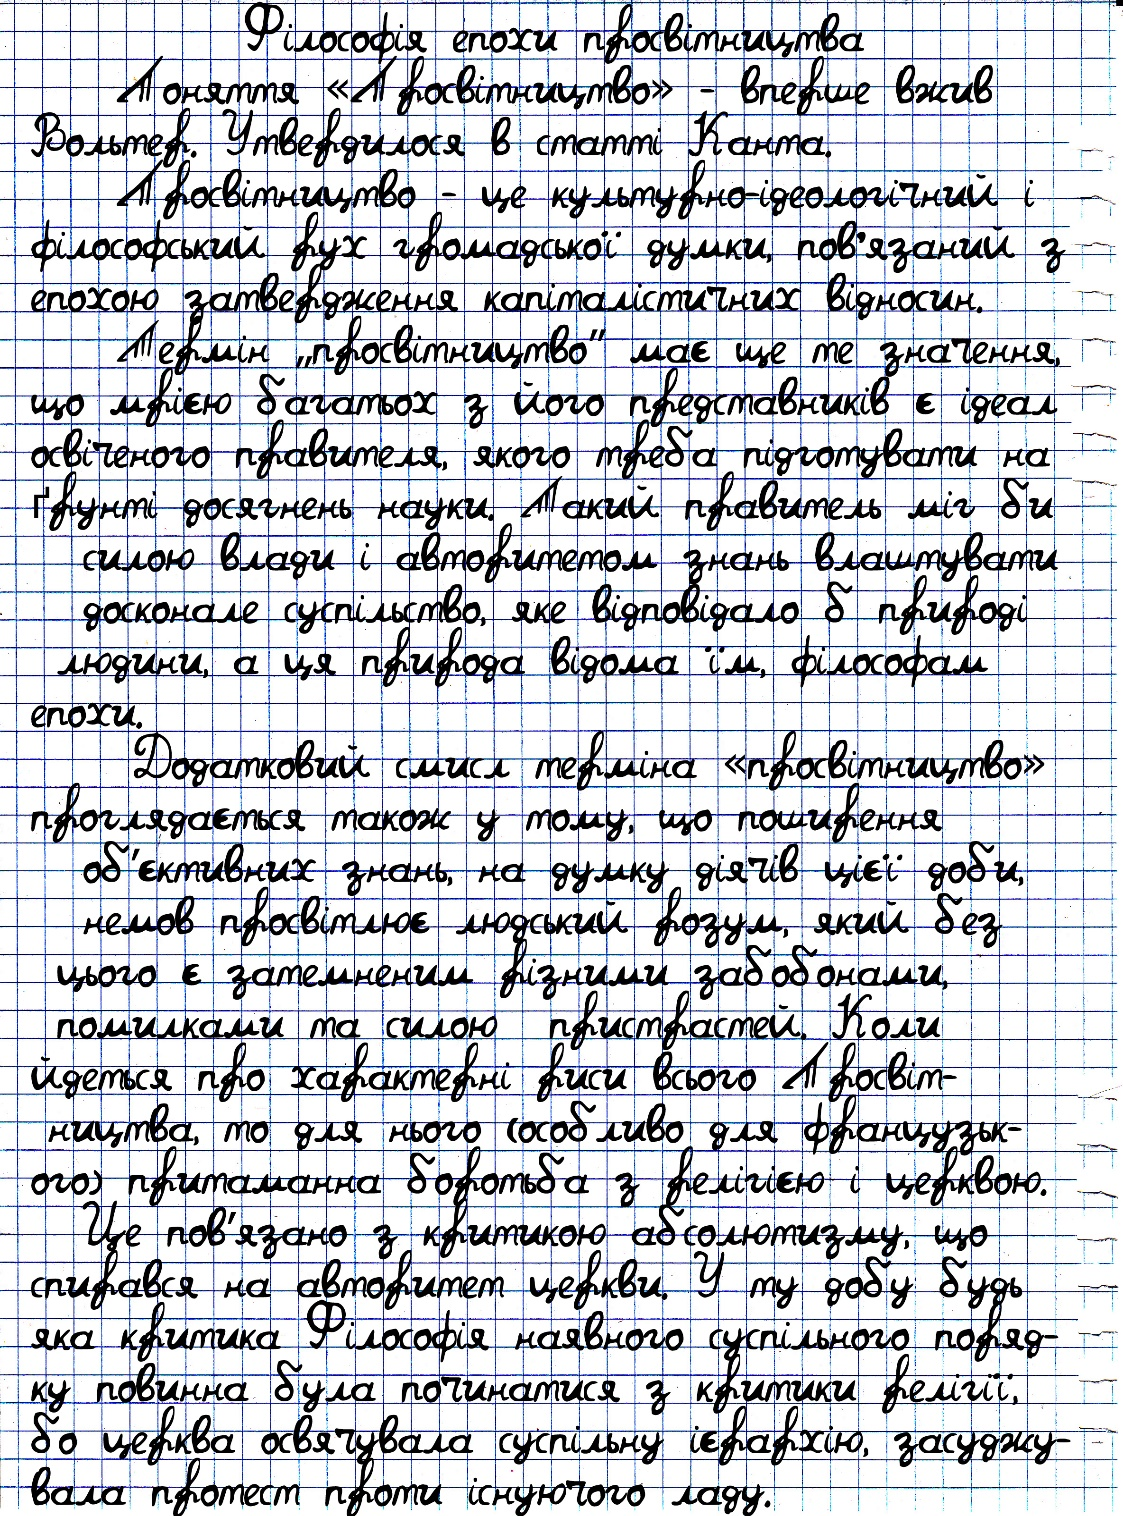 Філософія епохи просвітництва
Поняття «Просвітництво» - вперше вжив
Вольтер. Утвердилося в статті Канта.
Просвітництво - це культурно-ідеологічний і
філософський рух громадської думки, пов'язаний з
епохою затвердження капіталістичних відносин.
Термін „просвітництво" має ще те значення,
що мрією багатьох з його представників є ідеал
освіченого правителя, якого треба підготувати на
ґрунті досягнень науки. Такий правитель міг би
силою влади і авторитетом знань влаштувати
досконале суспільство, яке відповідало б природі
людини, а ця природа відома їм, філософам
епохи.
Додатковий смисл терміна «просвітництво»
проглядається також у тому, що поширення
об'єктивних знань, на думку діячів цієї доби,
немов просвітлює людський розум, який без
цього є затемненим різними забобонами,
помилками та силою пристрастей. Коли
йдеться про характерні риси всього Просвіт-
ництва, то для нього (особливо для французьк-
ого) притаманна боротьба з релігією і церквою.
Це пов'язано з критикою абсолютизму, що
спирався на авторитет церкви. У ту добу будь
яка критика Філософія наявного суспільного поряд-
ку повинна була починатися з критики релігії,
бо церква освячувала суспільну ієрархію, засуджу-
вала протест проти існуючого ладу.